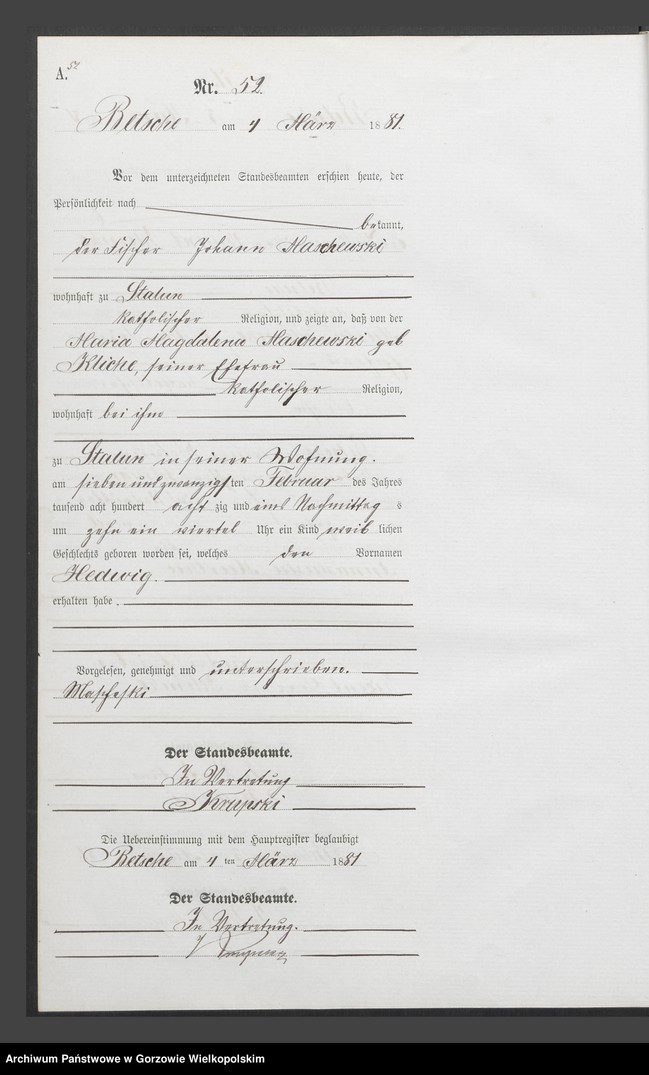 A. 52
Nr. 52.
Betsche am 4 März 1881.
Vor dem unterzeichneten Standesbeamten erschien heute, der
Persönlichkeit nach
bekannt,
der Fischer Johann Maschewski
wohnhaft zu Stalun
katholischer Religion, und zeigte an, daß von der
Maria Magdalena Maschewski geb
Kliche, seiner Ehefrau
katholischer Religion,
wohnhaft bei ihm
zu Stalun in seiner Wohnung.
am sieben und zwanzigsten Februar des Jahres
tausend acht hundert acht zig und eins Nachmittag s
um zehn ein viertel Uhr ein Kind weib lichen
Geschlechts geboren worden sei, welches den Vornamen
Hedwig.
erhalten habe.
Vorgelesen, genehmigt und unterschrieben.
Mascheski
Der Standesbeamte.
In Vertretung
Krupski
Die Uebereinstimmung mit dem Hauptregister beglaubigt
Betsche am 4 ten März 1881
Der Standesbeamte.
In Vertretung.
Archiwum Państwowe w Gorzowie Wielkopolskim